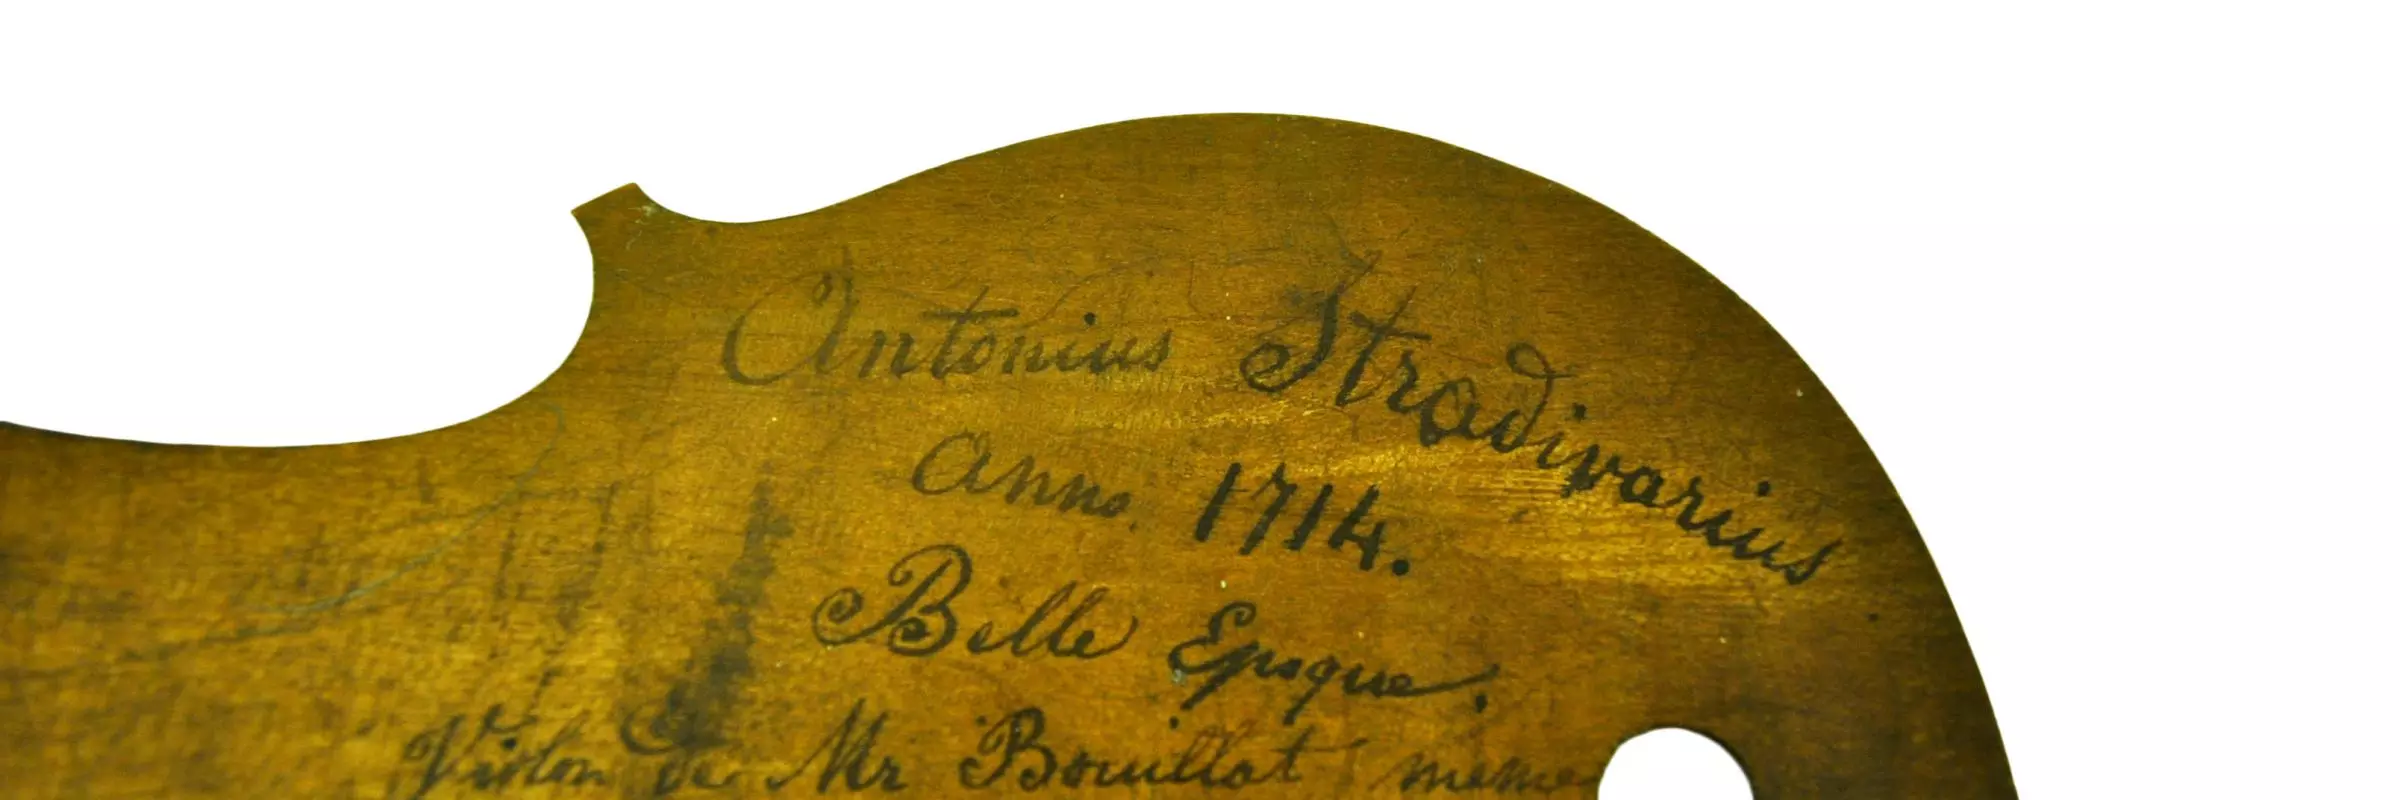 Antonius Stradivarius
Anno. 1714.
Belle Epoque.
Violon de Mr Bouillat meme